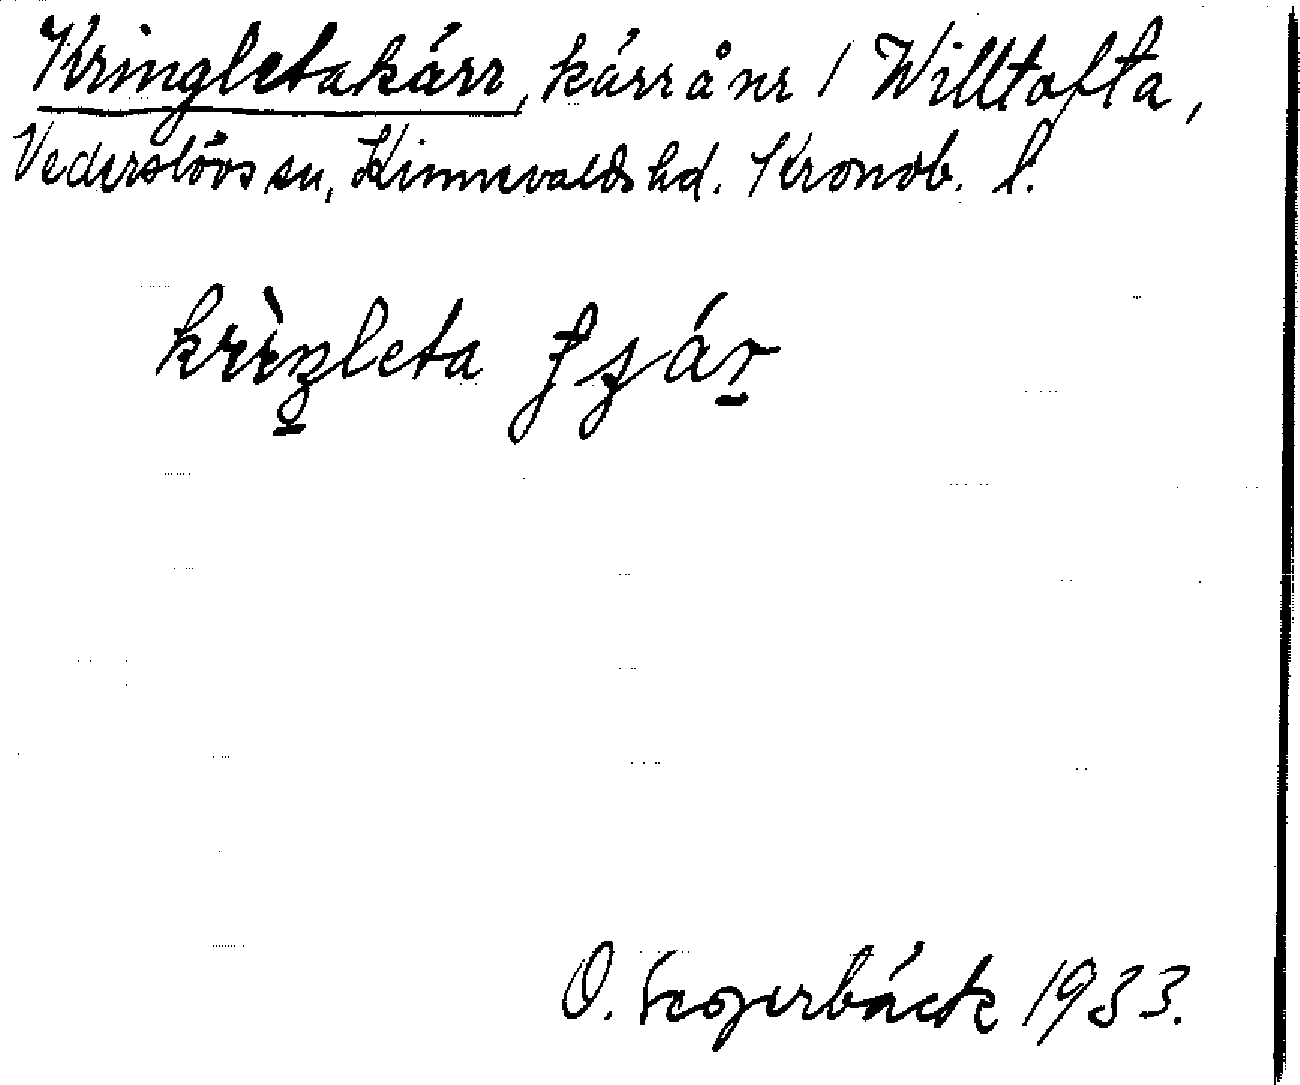 Kringletakärr, kärr å nr 1 Willtofta,
Vederslövs sn, Kinnevalds hd. Kronob. l.
krìŋleta
O. Segerbäck 1933.